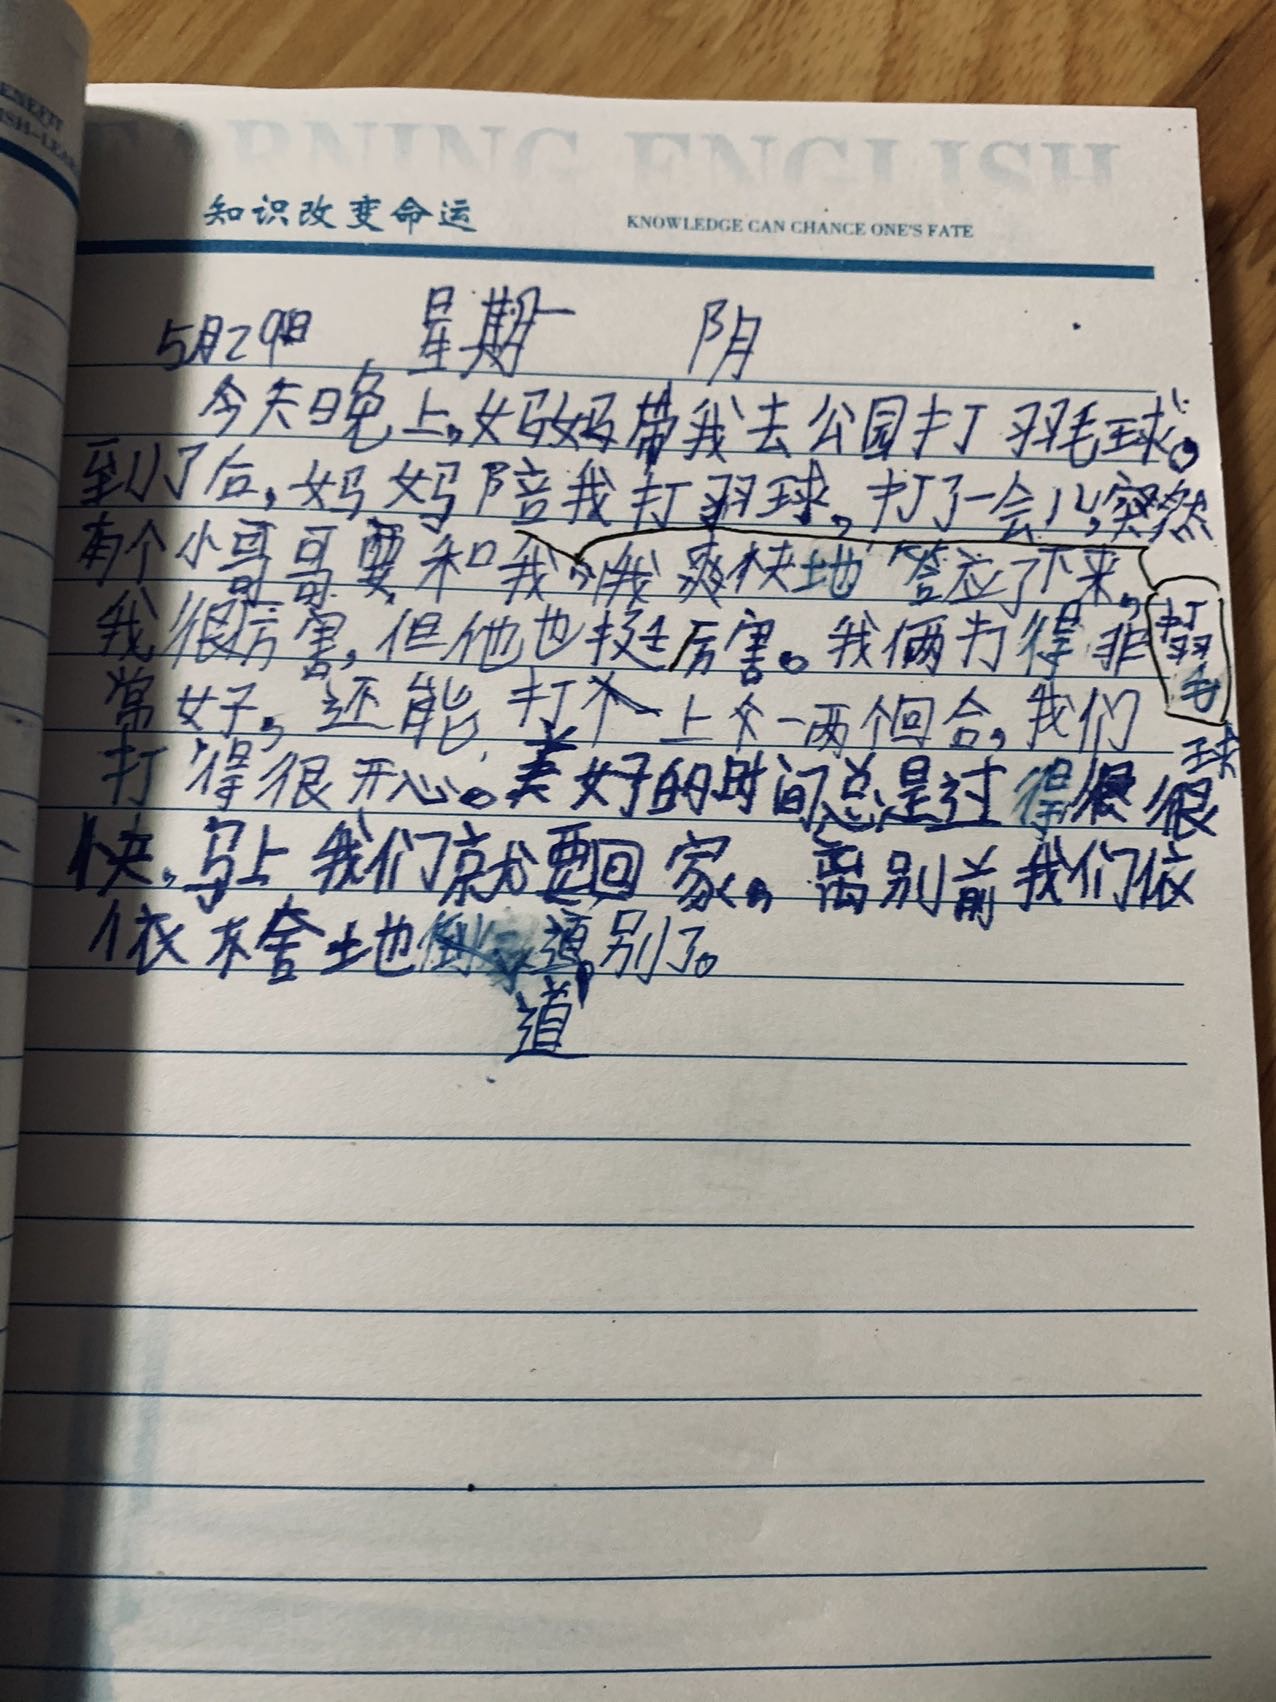 ENEFIT
ISH-LEA
EARNING ENGLISH
知识改变命运
KNOWLEDGE CAN CHANCE ONE'S FATE
5月29日 星期一 阴
今天晚上,妈妈带我去公园打羽毛球。
到了后,妈妈陪我打羽球,打了一会儿,突然
有个小哥哥要和我,我爽快地答应了下来,
打羽毛球
我很厉害,但他也挺厉害。我俩打得非
常好,还能打个上个一两个回合,我们
打得很开心。美好的时间总是过得很很
快,马上我们就要回家,离别前我们依
依不舍地道别了。
道